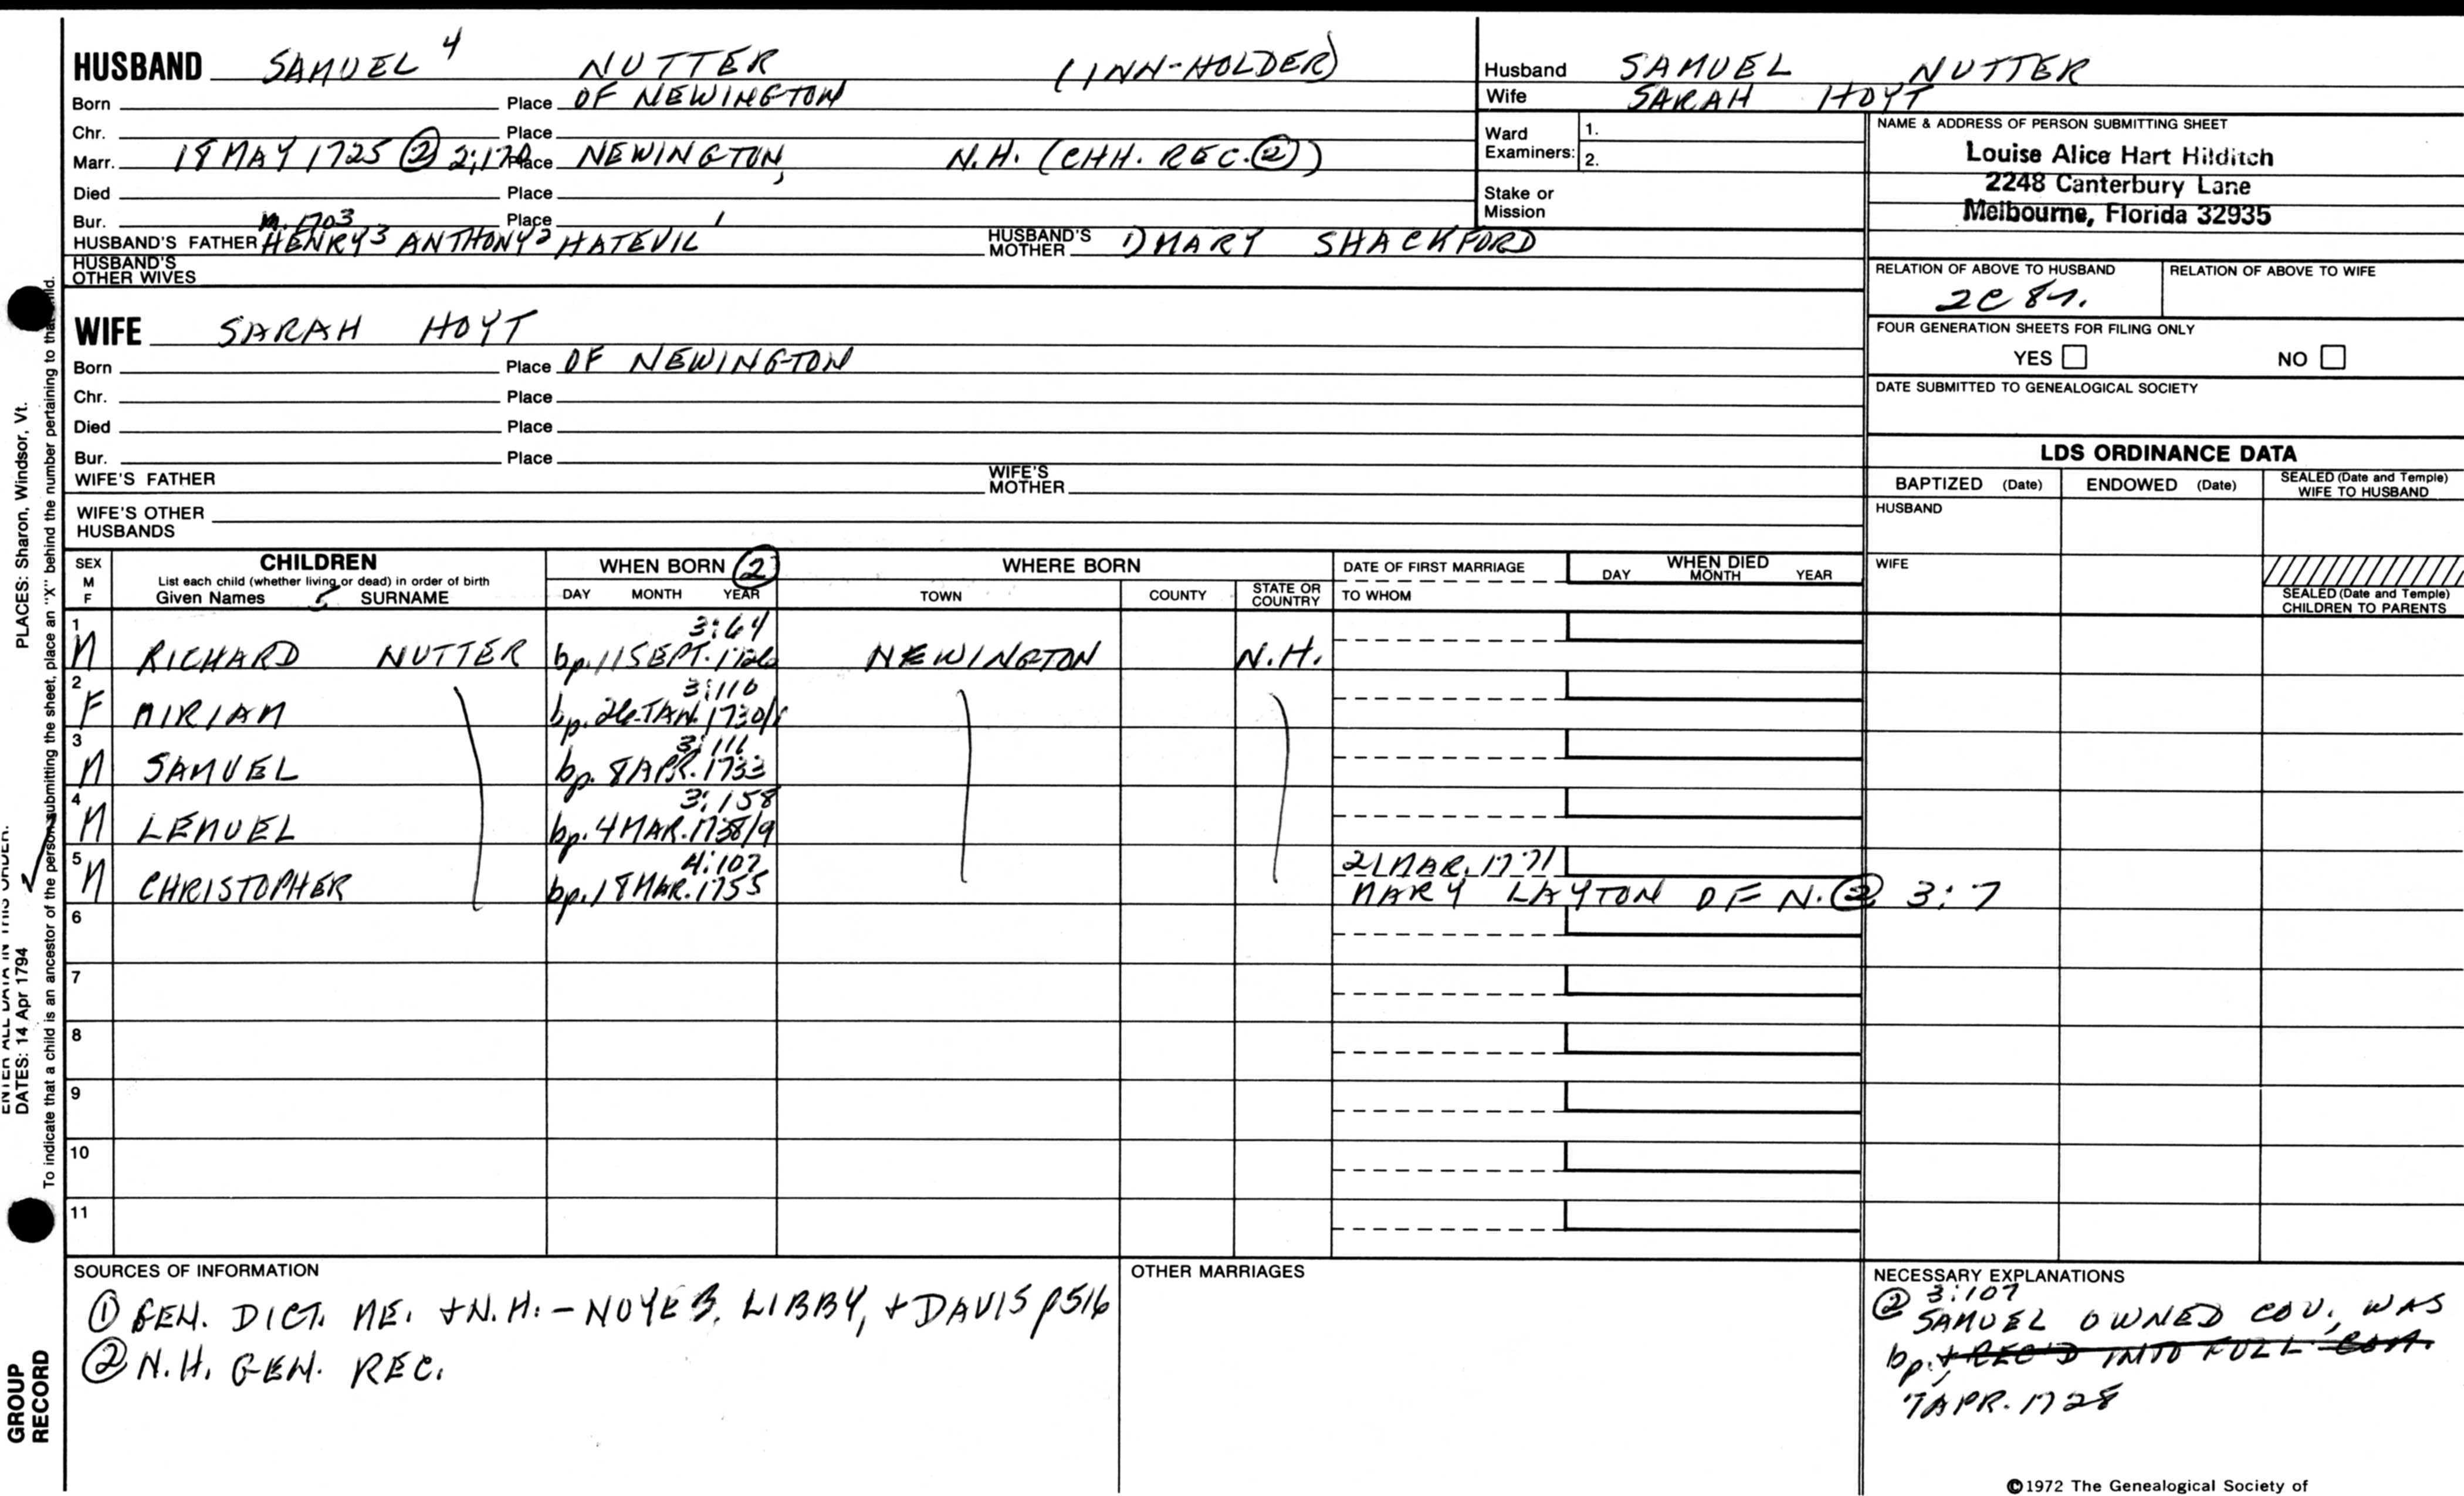 HUSBAND SAMUEL 4 NUTTER (INN-HOLDER)
Born Place OF NEWINGTON
Chr. Place
Marr. 18 MAY 1725 ② 2:170 Place NEWINGTON, N.H. (CHH. REC. ②)
Died Place
Bur. Place
m. 1703
HUSBAND'S FATHER HENRY 3 ANTHONY 2 HATEVIL 1 HUSBAND'S MOTHER 1) MARY SHACKFORD
HUSBAND'S OTHER WIVES
WIFE SARAH HOYT
Born Place OF NEWINGTON
Chr. Place
Died Place
Bur. Place
WIFE'S FATHER WIFE'S MOTHER
WIFE'S OTHER HUSBANDS
Husband SAMUEL NUTTER
Wife SARAH HOYT
Ward Examiners: 1.
2.
Stake or Mission
NAME & ADDRESS OF PERSON SUBMITTING SHEET
Louise Alice Hart Hilditch
2248 Canterbury Lane
Melbourne, Florida 32935
RELATION OF ABOVE TO HUSBAND RELATION OF ABOVE TO WIFE
2C 8r.
FOUR GENERATION SHEETS FOR FILING ONLY
YES NO
DATE SUBMITTED TO GENEALOGICAL SOCIETY
LDS ORDINANCE DATA
BAPTIZED (Date) ENDOWED (Date) SEALED (Date and Temple) WIFE TO HUSBAND
HUSBAND
WIFE
SEALED (Date and Temple) CHILDREN TO PARENTS
SEX M F
CHILDREN
List each child (whether living or dead) in order of birth
Given Names SURNAME
WHEN BORN ②
DAY MONTH YEAR
WHERE BORN
TOWN COUNTY STATE OR COUNTRY
DATE OF FIRST MARRIAGE
TO WHOM
WHEN DIED
DAY MONTH YEAR
1 3:64
M RICHARD NUTTER bp. 11 SEPT. 1726 NEWINGTON N.H.
2 3:110
F MIRIAM bp. 26 JAN. 1730/1
3 3:111
M SAMUEL bp. 8 APR. 1733
4 3:158
M LEMUEL bp. 4 MAR. 1738/9
5 4:107 21 MAR. 1771
M CHRISTOPHER bp. 18 MAR. 1755 MARY LAYTON OF N. ② 3:7
6
7
8
9
10
11
SOURCES OF INFORMATION
① GEN. DICT. ME. + N.H. - NOYES, LIBBY, + DAVIS p516
② N.H. GEN. REC.
OTHER MARRIAGES
NECESSARY EXPLANATIONS
② 3:107
SAMUEL OWNED COV., WAS
bp. + REC'D INTO FULL COM.
7 APR. 1728
©1972 The Genealogical Society of
PLACES: Sharon, Windsor, Vt.
ENTER ALL DATA IN THIS ORDER:
DATES: 14 Apr 1794
To indicate that a child is an ancestor of the person submitting the sheet, place an "X" behind the number pertaining to that child.
GROUP
RECORD